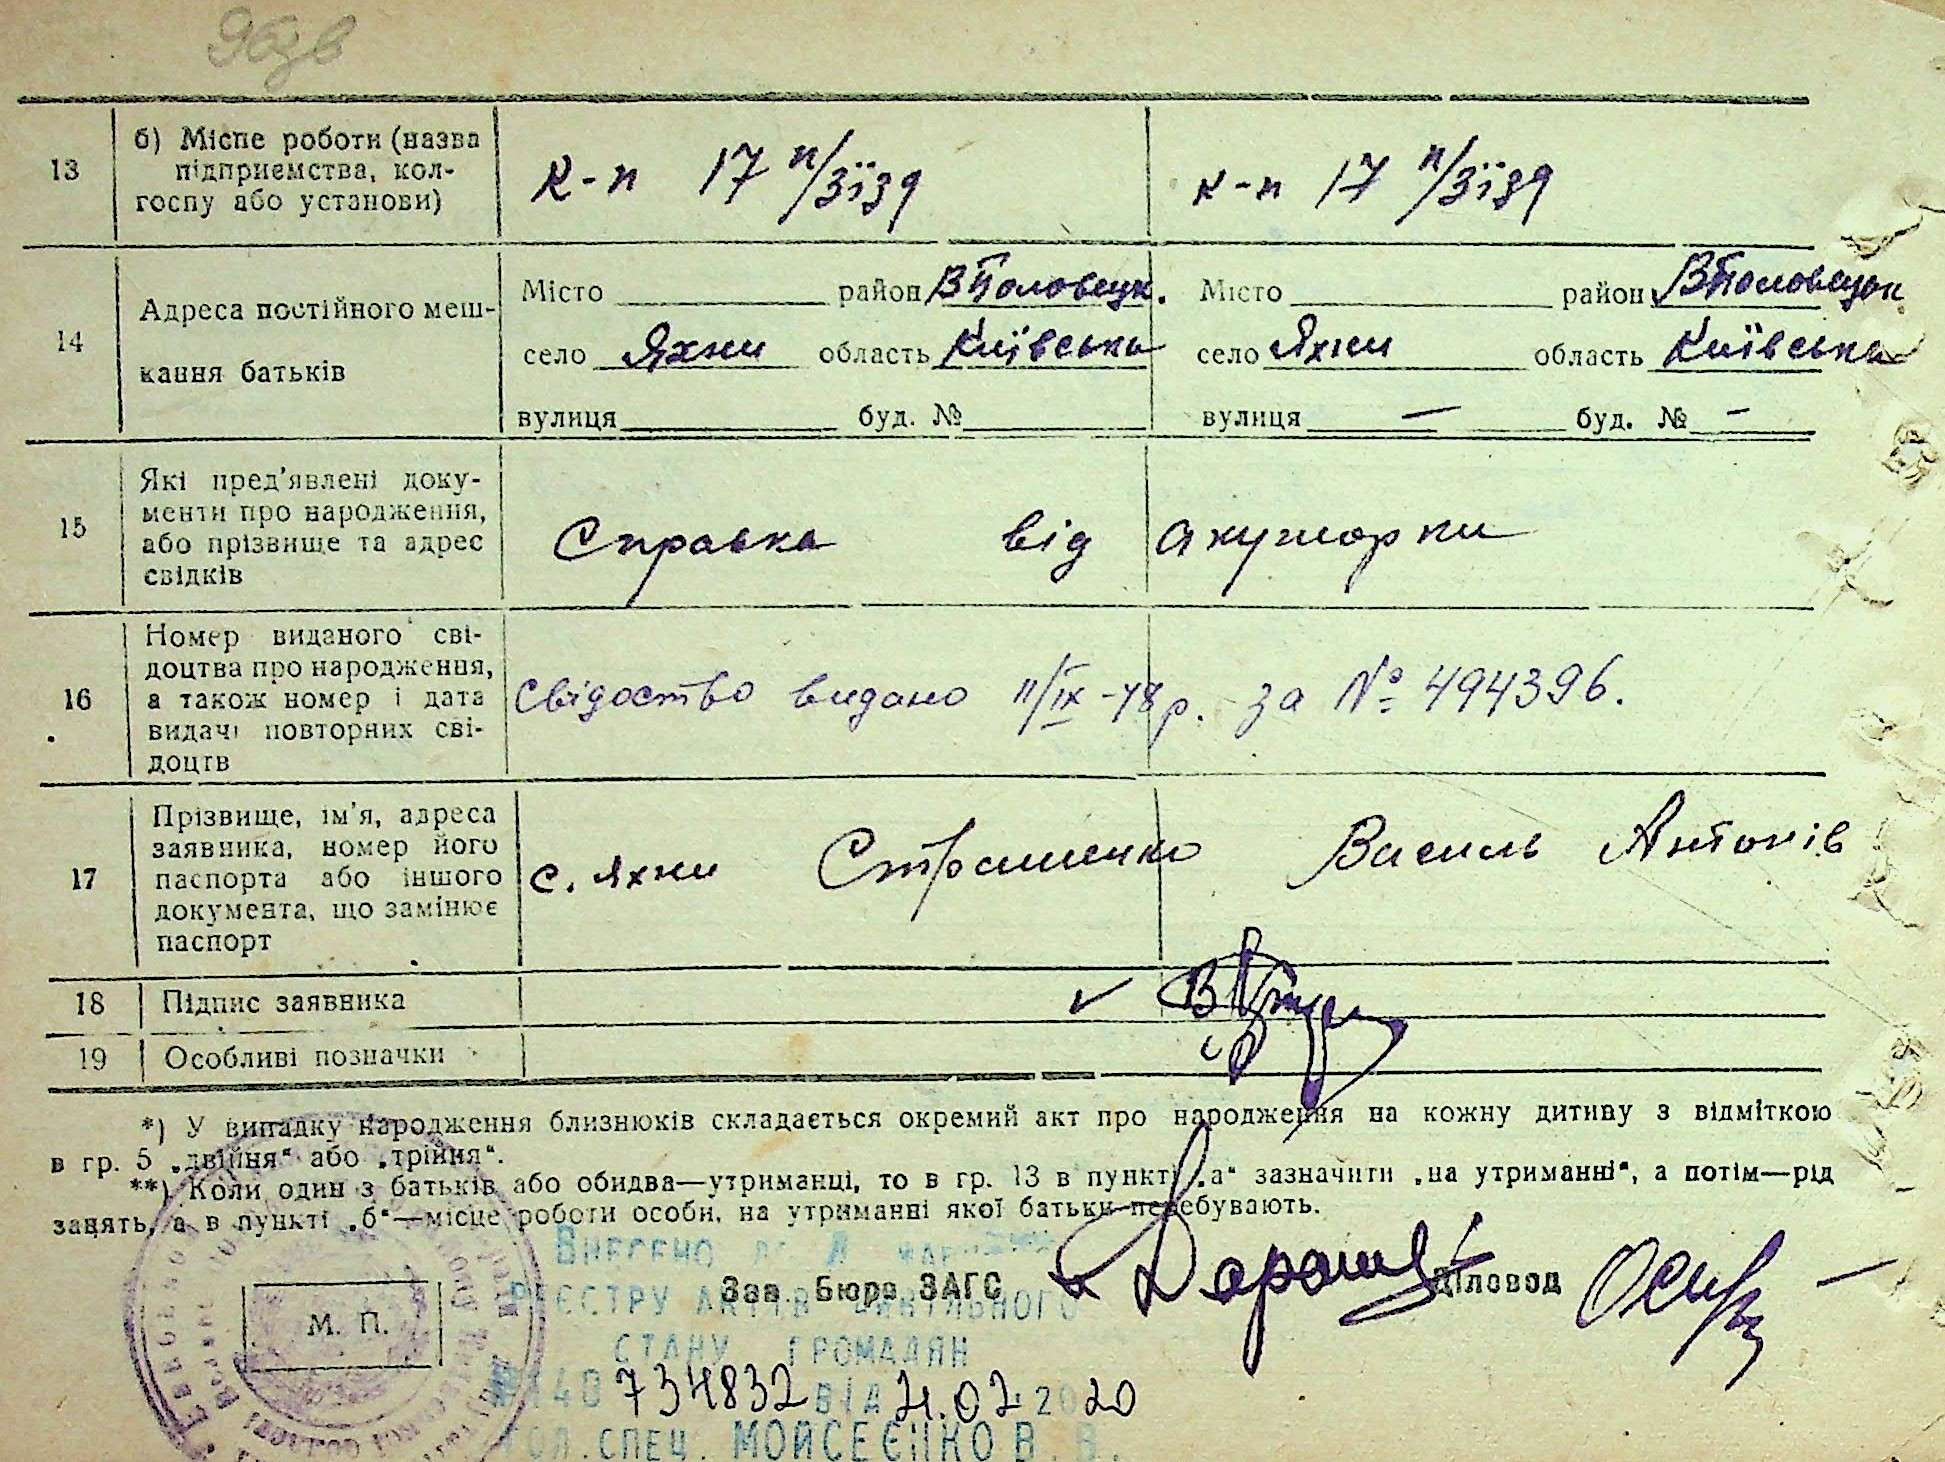 96зв
13 б) Місце роботи (назва підприємства, колгоспу або установи) к-п 17 п/зїзд к-п 17 п/зїзд
14 Адреса постійного мешкання батьків
Місто район ВПоловецк. Місто район ВПоловецьк
село Яхни область Київська село Яхни область Київська
вулиця буд. № вулиця — буд. № –
15 Які пред'явлені документи про народження, або прізвище та адрес свідків
Справка від акушорки
16 Номер виданого свідоцтва про народження, а також номер і дата видачі повторних свідоцтв
Свідоство видано 11/IX-48р. за № 494396.
17 Прізвище, ім'я, адреса заявника, номер його паспорта або іншого документа, що замінює паспорт
с. Яхни Страшенко Василь Антонів
18 Підпис заявника
19 Особливі позначки
*) У випадку народження близнюків складається окремий акт про народження на кожну дитину з відміткою
в гр. 5 „двійня“ або „трійня“.
**) Коли один з батьків або обидва—утриманці, то в гр. 13 в пункті „а“ зазначити „на утриманні“, а потім—рід
занять, а в пункті „б“—місце роботи особи, на утриманні якої батьки перебувають.
М. П.
Зав. Бюро ЗАГС Діловод
ВНЕСЕНО ДО
РЕЄСТРУ АКТІВ ЦИВІЛЬНОГО
СТАНУ ГРОМАДЯН
734832 ВІД 21.02.2020
ГОЛ.СПЕЦ. МОЙСЕЄНКО В. В.